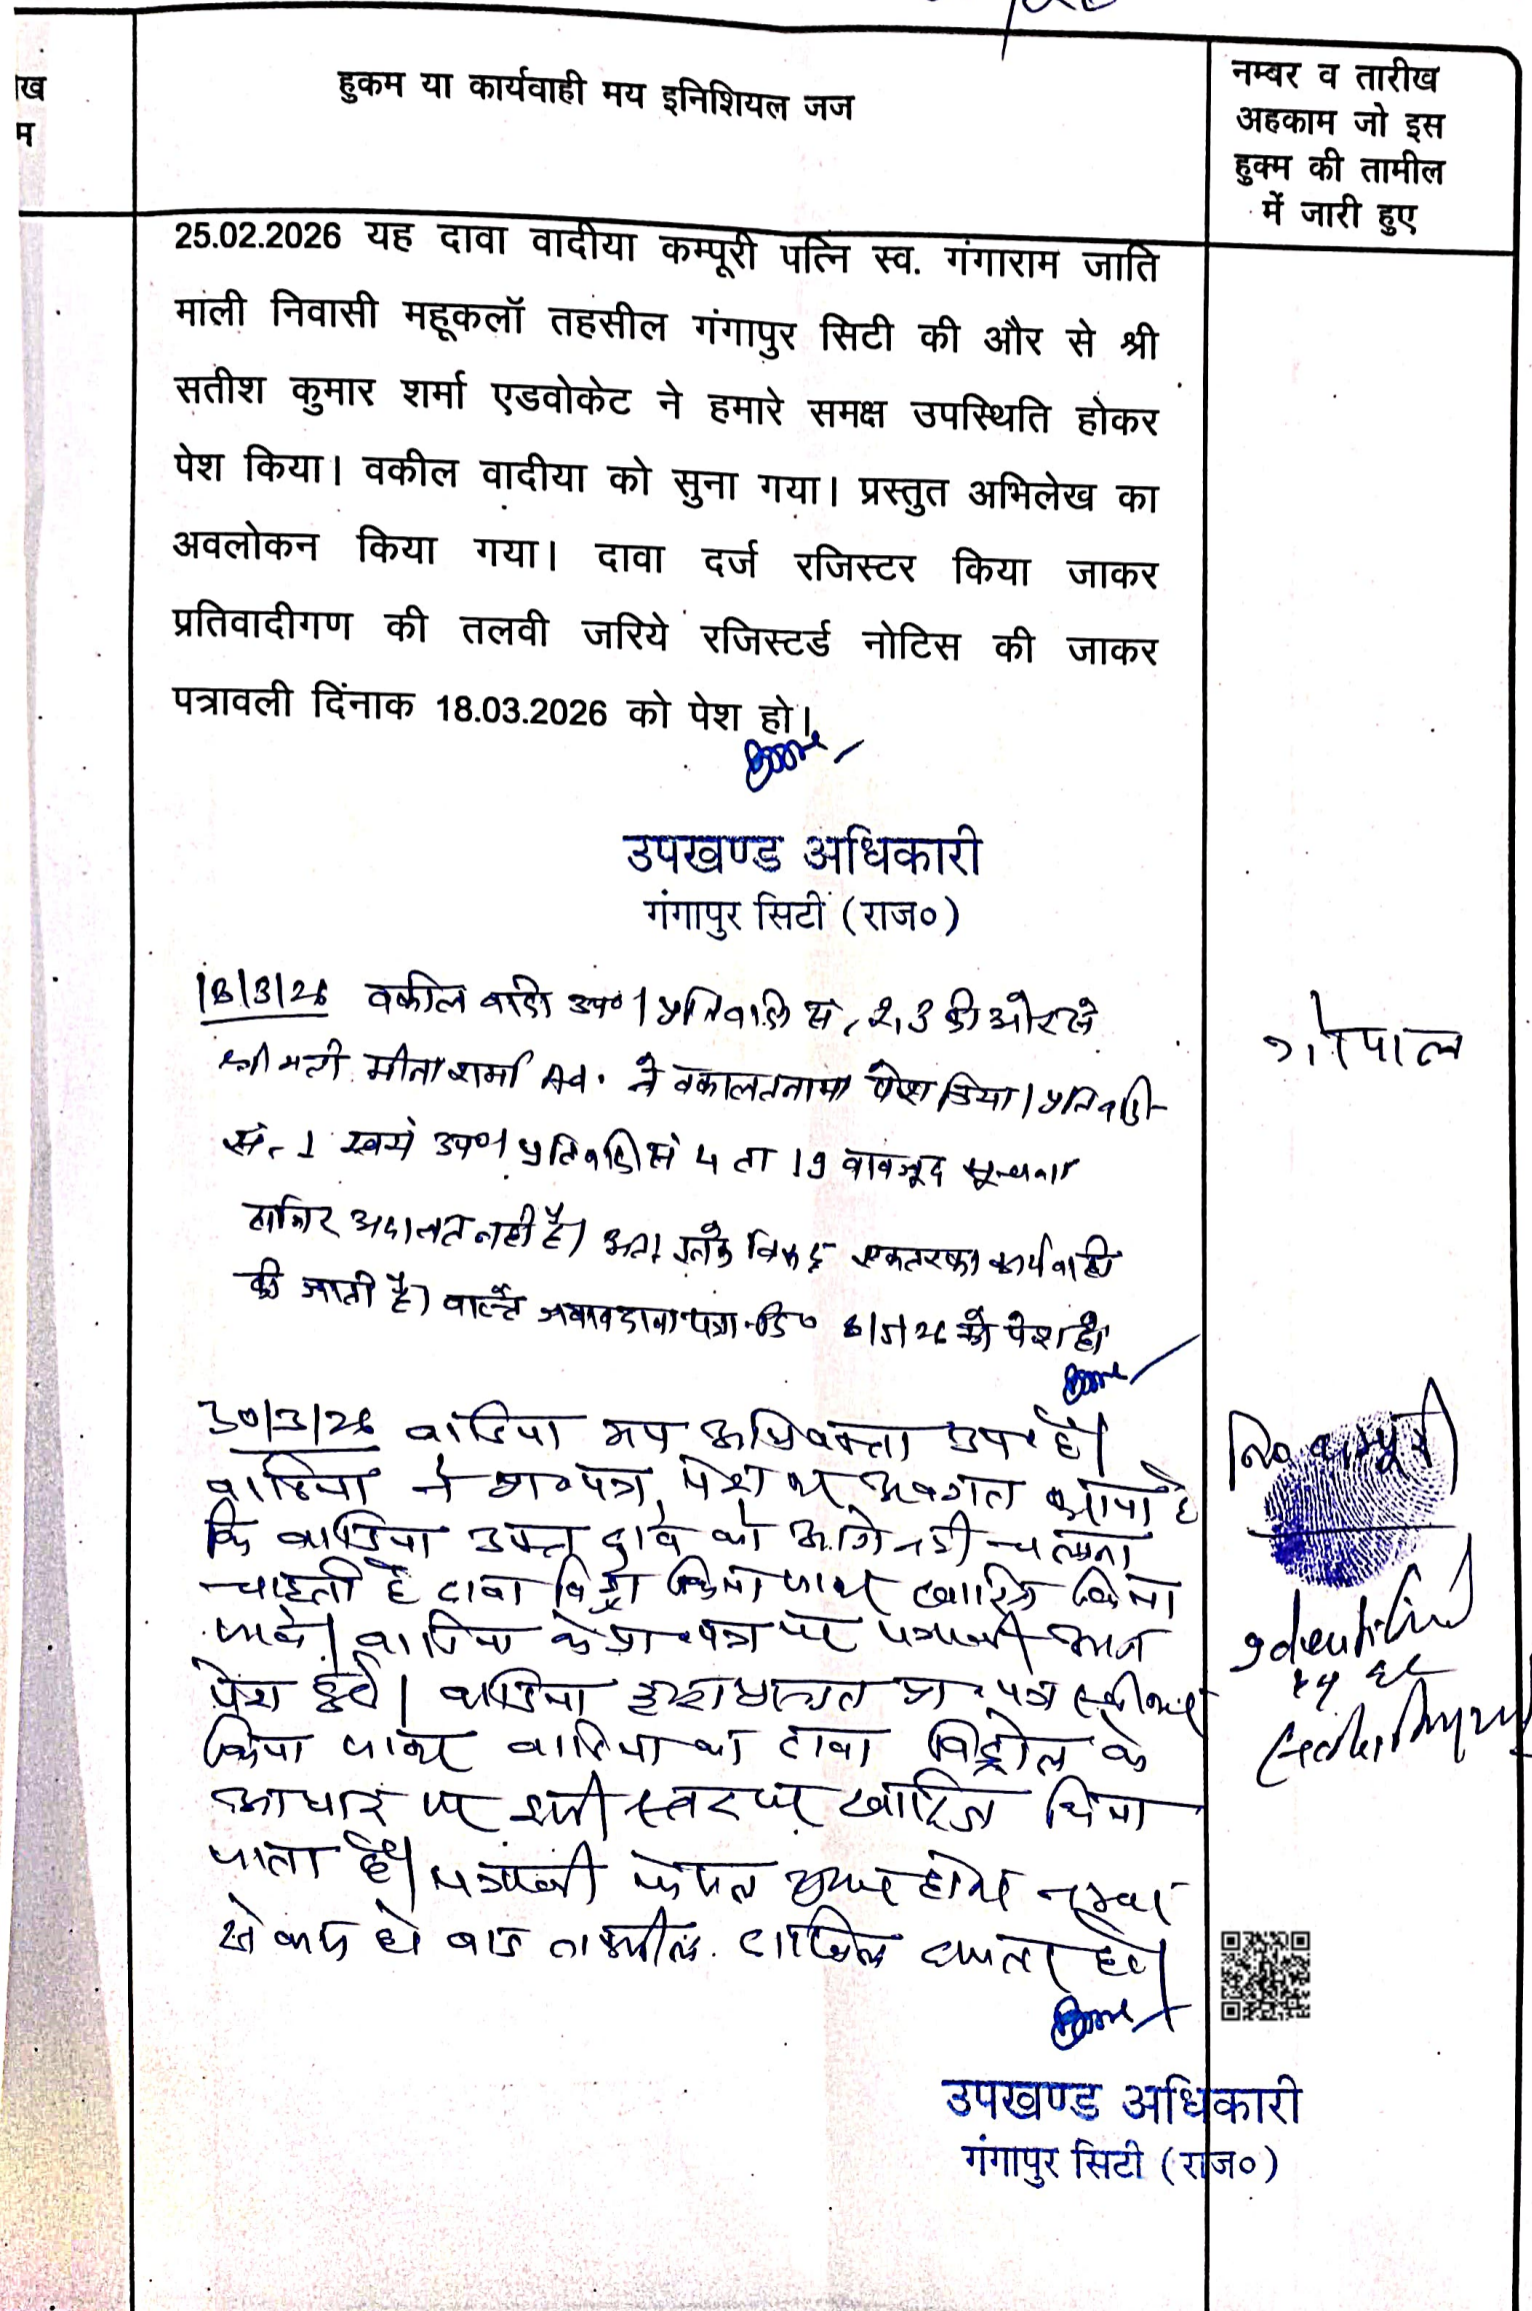 ख
म
हुकम या कार्यवाही मय इनिशियल जज
नम्बर व तारीख
अहकाम जो इस
हुक्म की तामील
में जारी हुए
25.02.2026 यह दावा वादीया कम्पूरी पत्नि स्व. गंगाराम जाति
माली निवासी महूकलॉ तहसील गंगापुर सिटी की और से श्री
सतीश कुमार शर्मा एडवोकेट ने हमारे समक्ष उपस्थिति होकर
पेश किया। वकील वादीया को सुना गया। प्रस्तुत अभिलेख का
अवलोकन किया गया। दावा दर्ज रजिस्टर किया जाकर
प्रतिवादीगण की तलवी जरिये रजिस्टर्ड नोटिस की जाकर
पत्रावली दिंनाक 18.03.2026 को पेश हो।
उपखण्ड अधिकारी
गंगापुर सिटी (राज०)
18/3/26 वकील वादी उप० । प्रतिवादी सं. 2, 3 की ओर से
श्रीमती मीना शर्मा Adv. ने वकालतनामा पेश किया। प्रतिवादी
सं. 1 स्वयं उप०। प्रतिवादी सं 4 ता 19 बावजूद सूचना
हाजिर अदालत नहीं है। अतः इनके विरूद्ध एकतरफा कार्यवाही
की जाती है। वास्ते जवाब दावा पत्रा. दि० 6/5/26 को पेश हो
गोपाल
30/3/26 वादिया मय अधिवक्ता उप. है।
वादिया ने प्रा. पत्र पेश कर अवगत कराया है
कि वादिया उक्त दावे को आगे नही चलाना
चाहती है दावा विड्रा किया जाकर खारिज किया
जावे। वादिया के प्रा. पत्र पर पत्रावली आज
पेश हुई। वादिया द्वारा प्रस्तुत प्रा. पत्र स्वीकार
किया जाकर वादिया का दावा विड्रोल के
आधार पर इसी स्तर पर खारिज किया
जाता है। पत्रावली फैसल शुमार होकर नम्बर
से कम हो बाद तामील दाखिल दफ्तर हो।
नि० कम्पूरी
Identified
by me
उपखण्ड अधिकारी
गंगापुर सिटी (राज०)